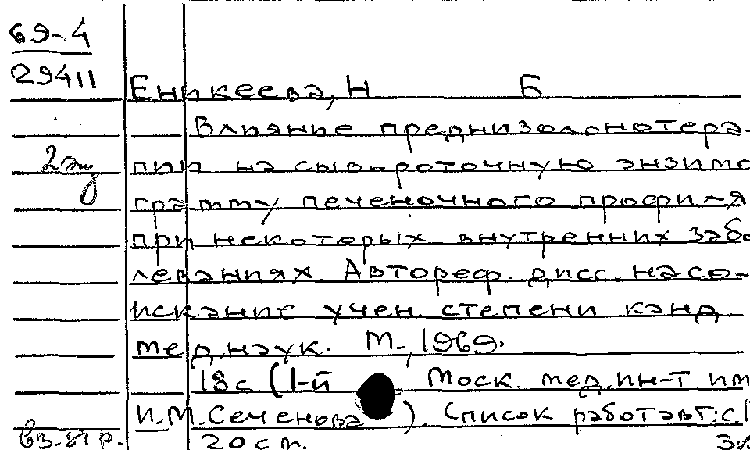 69-4
29411
Еникеева, Н Б
Влияние преднизолонотера-
2 экз
пии на сывороточную энзимо
грамму печеночного профиля
при некоторых внутренних забо
леваниях. Автореф. дисс. на со-
искание учен. степени канд
мед. наук. М., 1969.
18 с (1-й Моск. мед. ин-т им
И.М. Сеченова). Список работ авт: с.
20 ст.